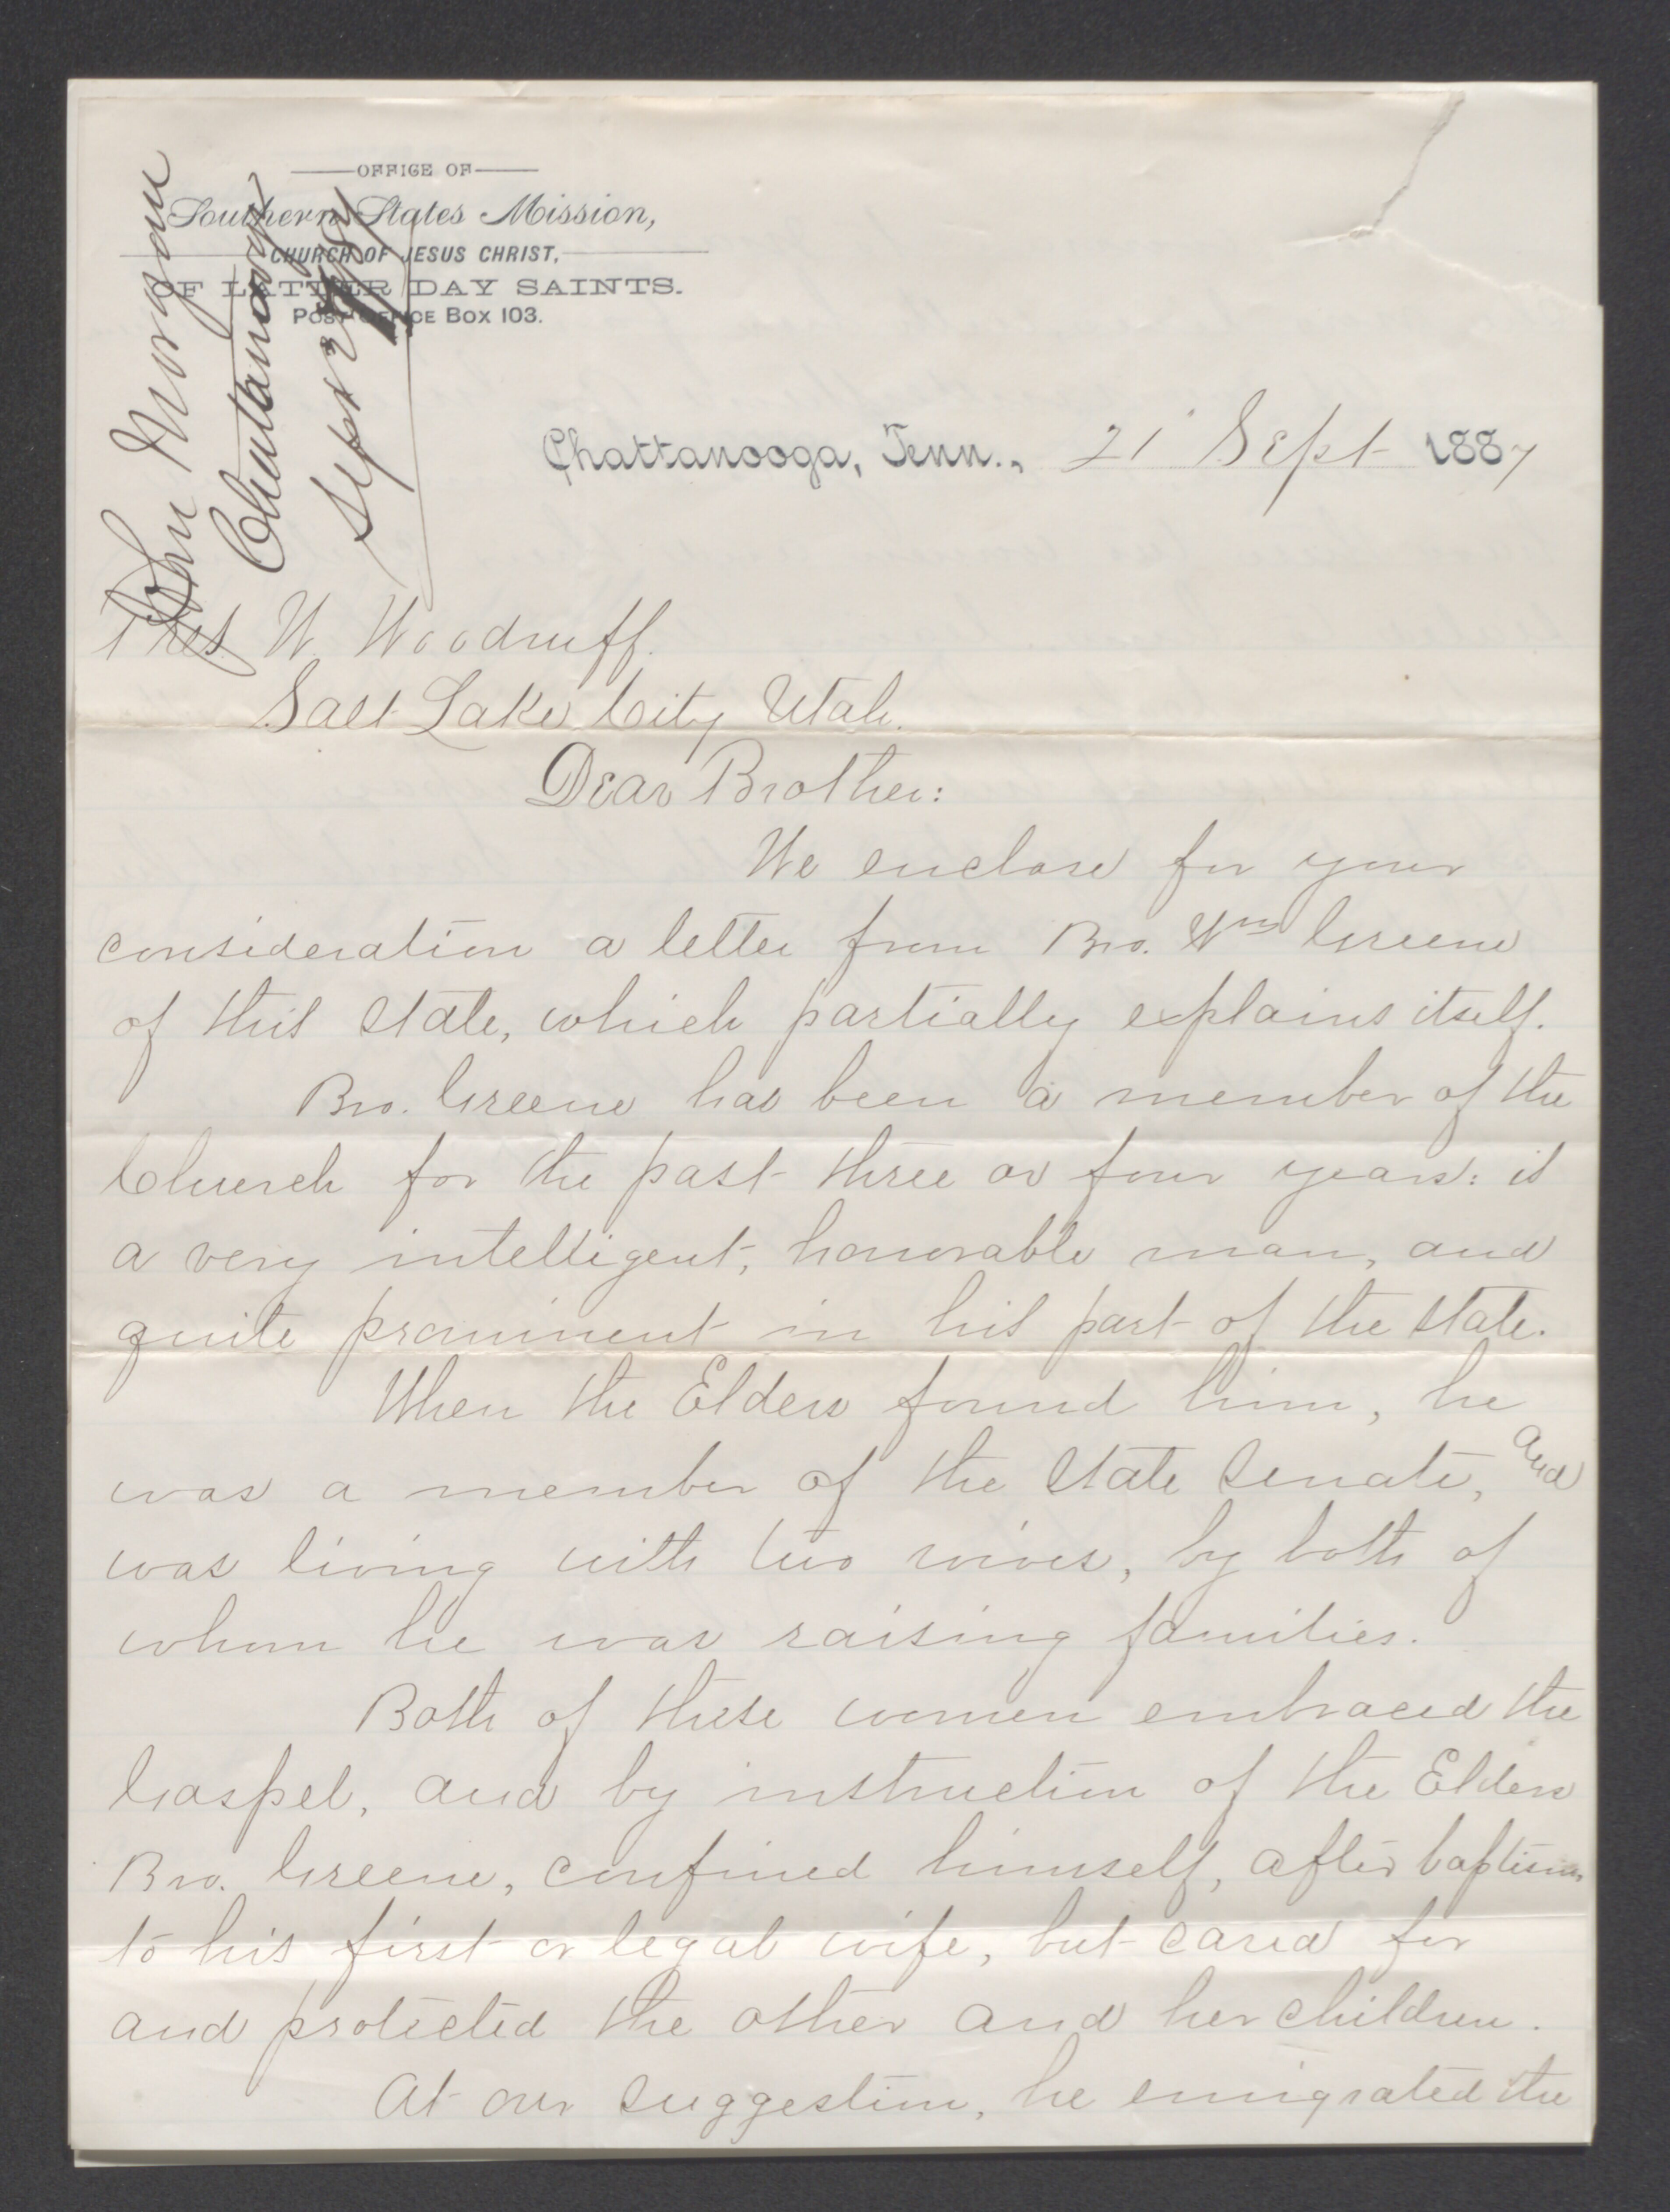 OFFICE OF
Southern States Mission,
CHURCH OF JESUS CHRIST,
OF LATTER DAY SAINTS.
POST OFFICE BOX 103.
John Morgan
Chattanooga
Sept
Chattanooga, Tenn., 21 Sept 1887
Pres W. Woodruff.
Salt Lake City Utah.
Dear Brother:
We enclose for your
consideration a letter from Bro. Wm Greene
of this state, which partially explains itself.
Bro. Greene has been a member of the
Church for the past three or four years: is
a very intelligent, honorable man, and
quite prominent in his part of the state.
When the Elders found him, he
was a member of the State Senate, and
was living with two wives, by both of
whom he was raising families.
Both of these women embraced the
Gospel, and by instruction of the Elders
Bro. Greene, confined himself, after baptism
to his first or legal wife, but cared for
and protected the other and her children.
At our suggestion, he emigrated the